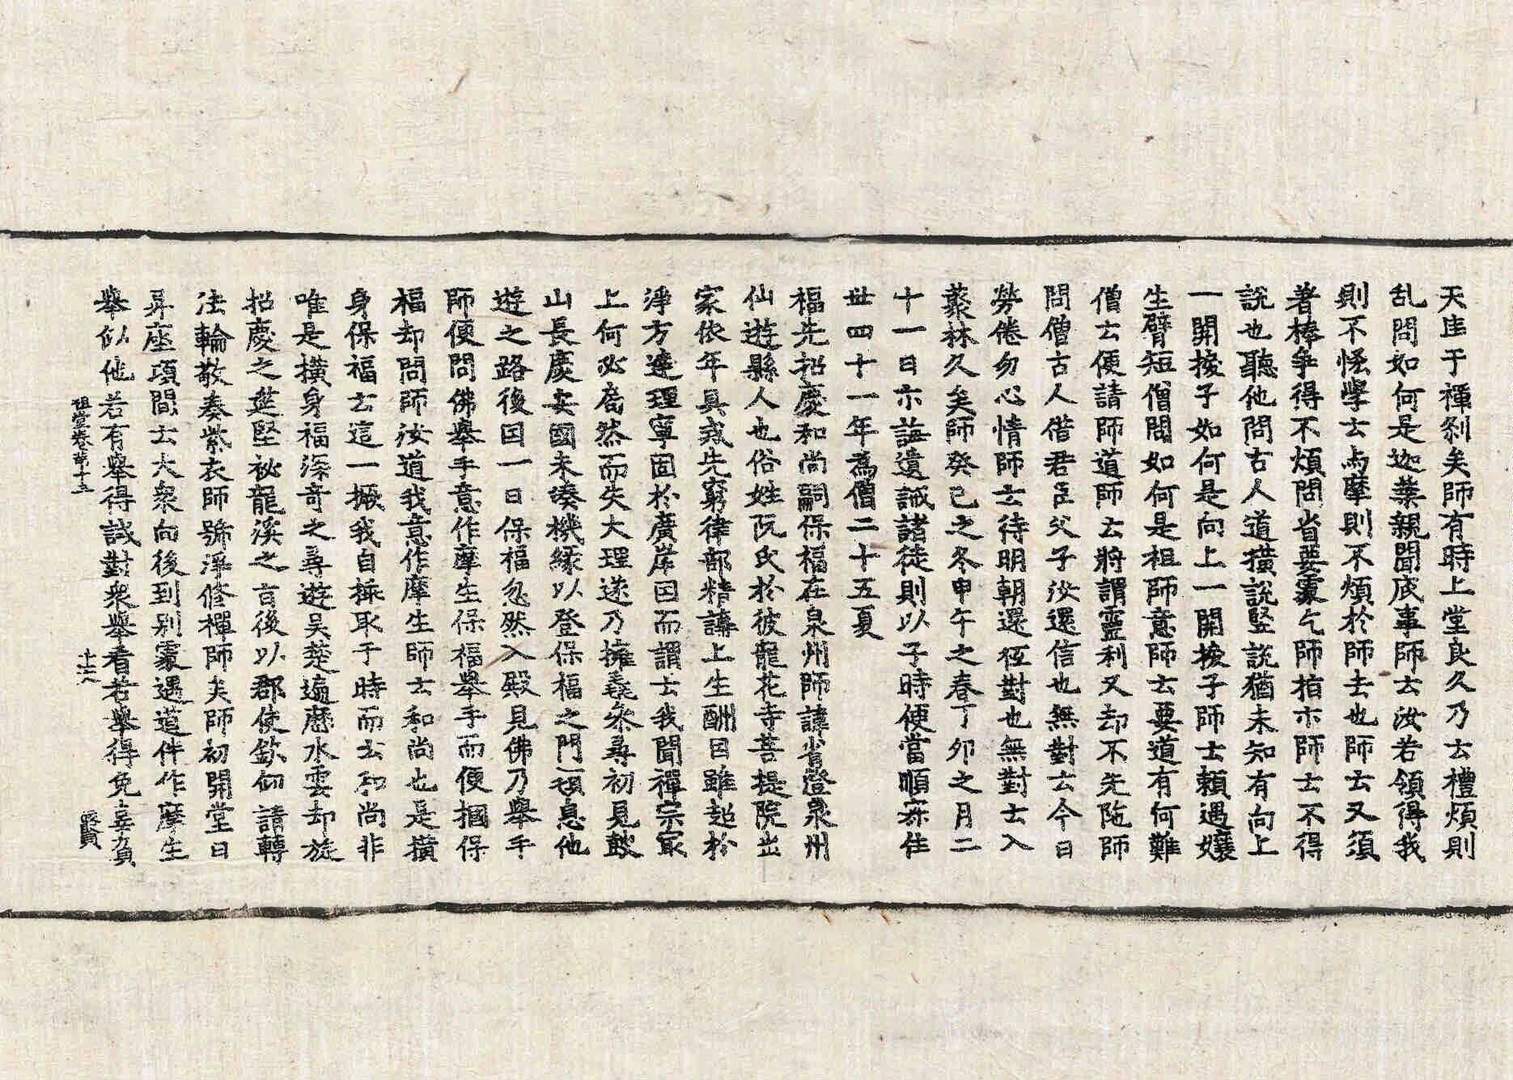 天生于禪刹矣師有時上堂良久乃云禮煩則
乱問如何是迦葉親聞底事師云汝若領得我
則不恡學士与摩則不煩於師去也師云又須
著棒爭得不煩問省要處乞師指示師云不得
說也聽他問古人道橫說竪說猶未知有向上
一關捩子如何是向上一關捩子師云賴遇孃
生臂短僧問如何是祖師意師云要道有何難
僧云便請師道師云將謂靈利又却不先陁師
問僧古人借君臣父子汝還信也無對云今日
勞倦勿心情師云待明朝還徑對也無對士入
藂林久矣師癸巳之冬申午之春丁卯之月二
十一日示誨遺誡諸徒則以子時便當順寂住
世四十一年爲僧二十五夏
福先招慶和尚嗣保福在泉州師諱省僜泉州
仙遊縣人也俗姓阮氏於彼龍花寺菩提院出
家依年具戒先窮律部精講上生酬因雖超於
淨方達理寧固於廣岸因而謂云我聞禪宗冣
上何必扃然而失大理遂乃擁毳參尋初見皷
山長慶安國未湊機緣以登保福之門頓息他
遊之路後因一日保福忽然入殿見佛乃舉手
師便問佛舉手意作摩生保福舉手而便摑保
福却問師汝道我意作摩生師云和尚也是橫
身保福云這一橛我自收取于時而云和尚非
唯是橫身福深奇之尋遊吳楚遍歷水雲却旋
招慶之筵堅祕龍溪之言後以郡使欽仰請轉
法輪敬奏紫衣師號淨修禪師矣師初開堂日
昇座頃間云大衆向後到別處遇道伴作摩生
舉似他若有舉得試對衆舉看若舉得免辜負
祖堂卷第十三 十六